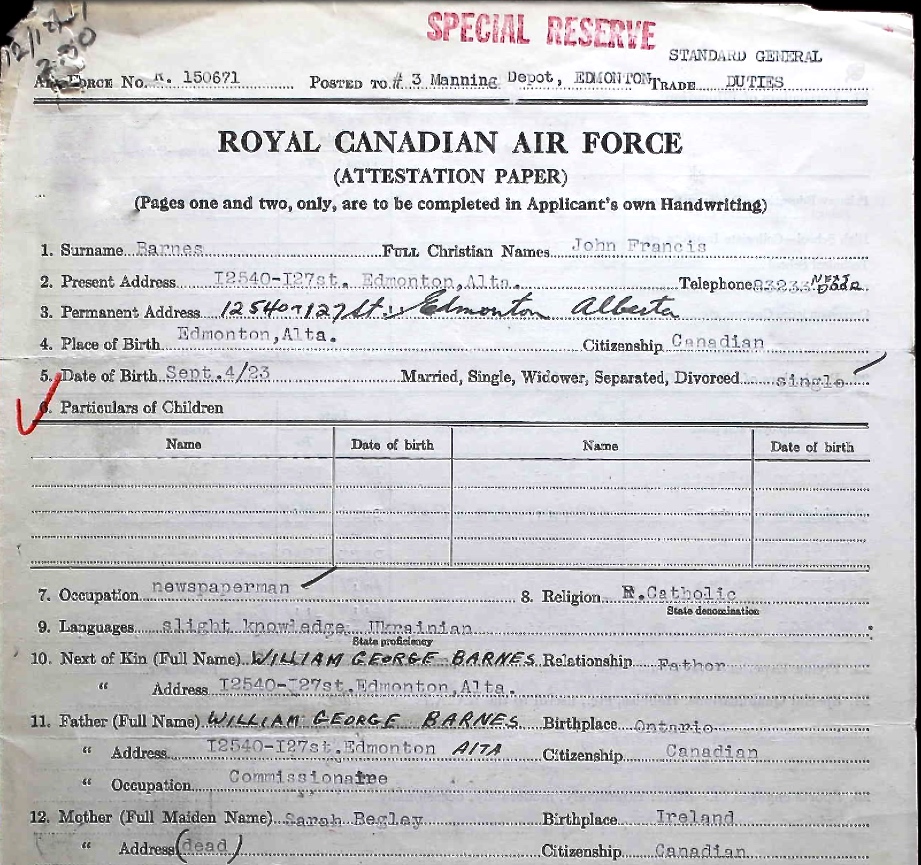 SPECIAL RESERVE
STANDARD GENERAL
AIR FORCE NO. R. 150671 POSTED TO # 3 Manning Depot, EDMONTON TRADE DUTIES
ROYAL CANADIAN AIR FORCE
(ATTESTATION PAPER)
(Pages one and two, only, are to be completed in Applicant's own Handwriting)
1. Surname Barnes FULL Christian Names John Francis
2. Present Address I2540-I27st. Edmonton,Alta. Telephone
3. Permanent Address 12540-127 St. Edmonton Alberta
4. Place of Birth Edmonton,Alta. Citizenship Canadian
5. Date of Birth Sept.4/23 Married, Single, Widower, Separated, Divorced single
6. Particulars of Children
Name Date of birth Name Date of birth
7. Occupation newspaperman 8. Religion R.Catholic
State denomination
9. Languages slight knowledge Ukrainian
State proficiency
10. Next of Kin (Full Name) WILLIAM GEORGE BARNES Relationship Father
" Address I2540-I27st.Edmonton,Alta.
11. Father (Full Name) WILLIAM GEORGE BARNES Birthplace Ontario
" Address I2540-I27st.Edmonton AlTA Citizenship Canadian
" Occupation Commissionaire
12. Mother (Full Maiden Name) Sarah Begley Birthplace Ireland
" Address (dead) Citizenship Canadian